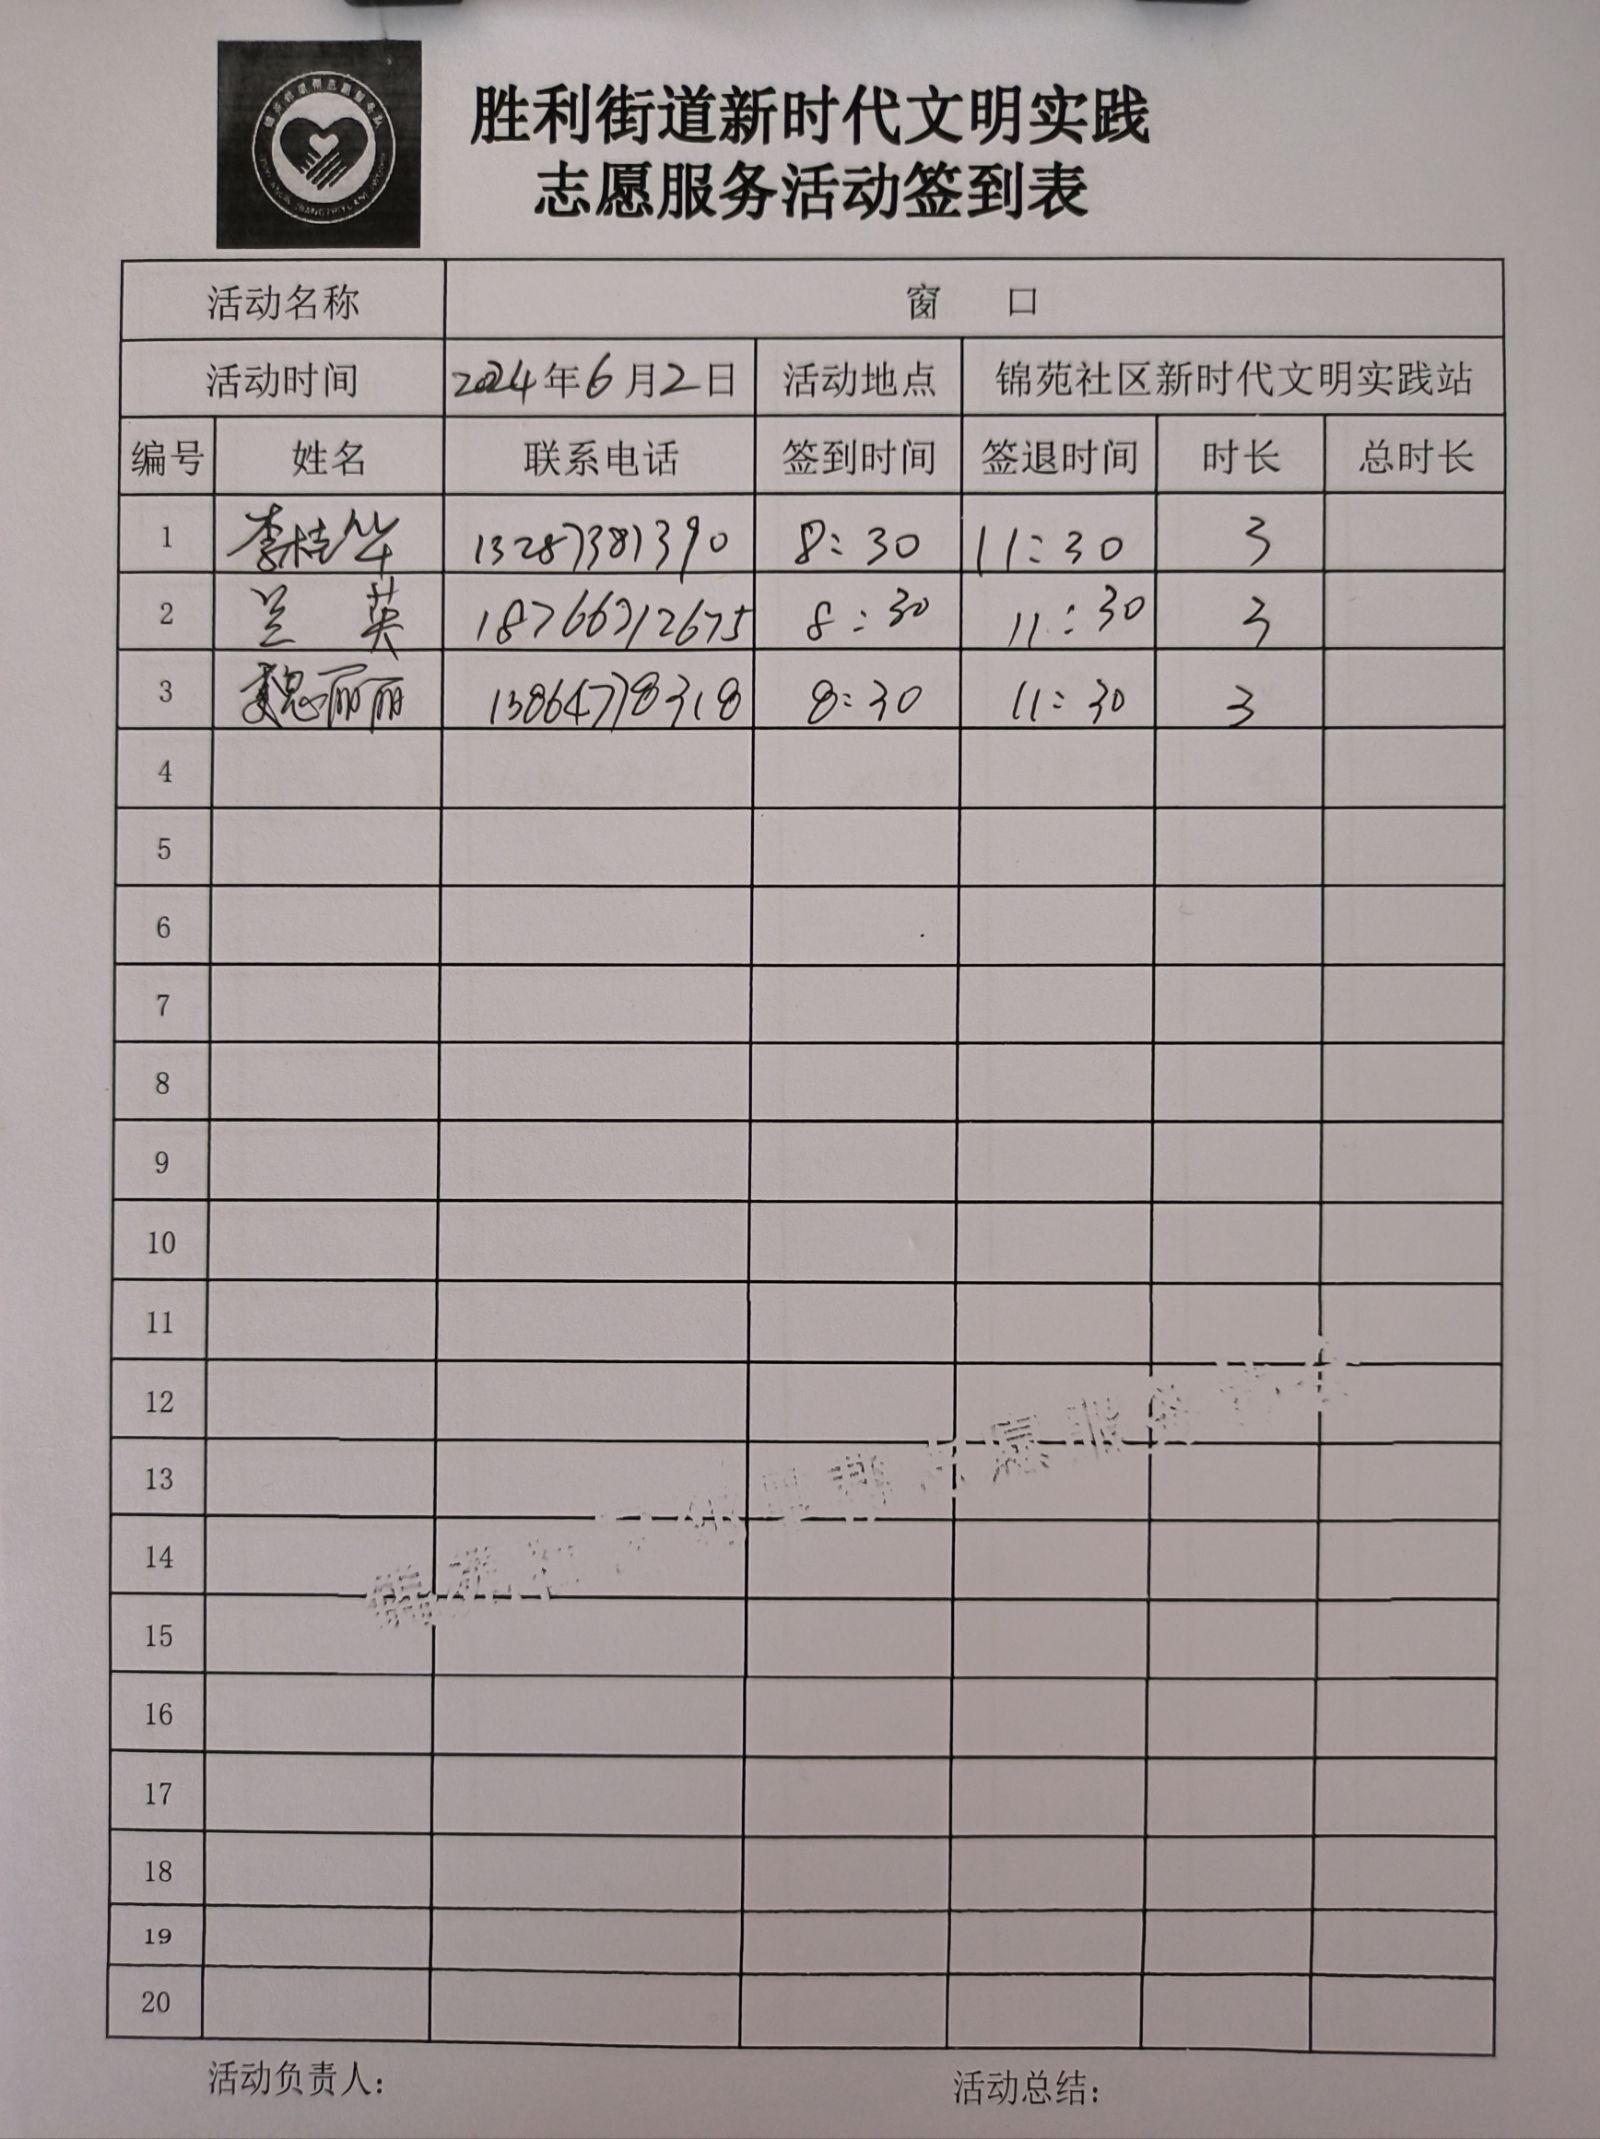 胜利街道新时代文明实践
志愿服务活动签到表
活动名称 窗 口
活动时间 2024年6月2日 活动地点 锦苑社区新时代文明实践站
编号 姓名 联系电话 签到时间 签退时间 时长 总时长
1 李桂华 13287381390 8:30 11:30 3
2 兰 英 18766712675 8:30 11:30 3
3 魏丽丽 13864778318 8:30 11:30 3
4
5
6
7
8
9
10
11
12
13
14
15
16
17
18
19
20
活动负责人: 活动总结: